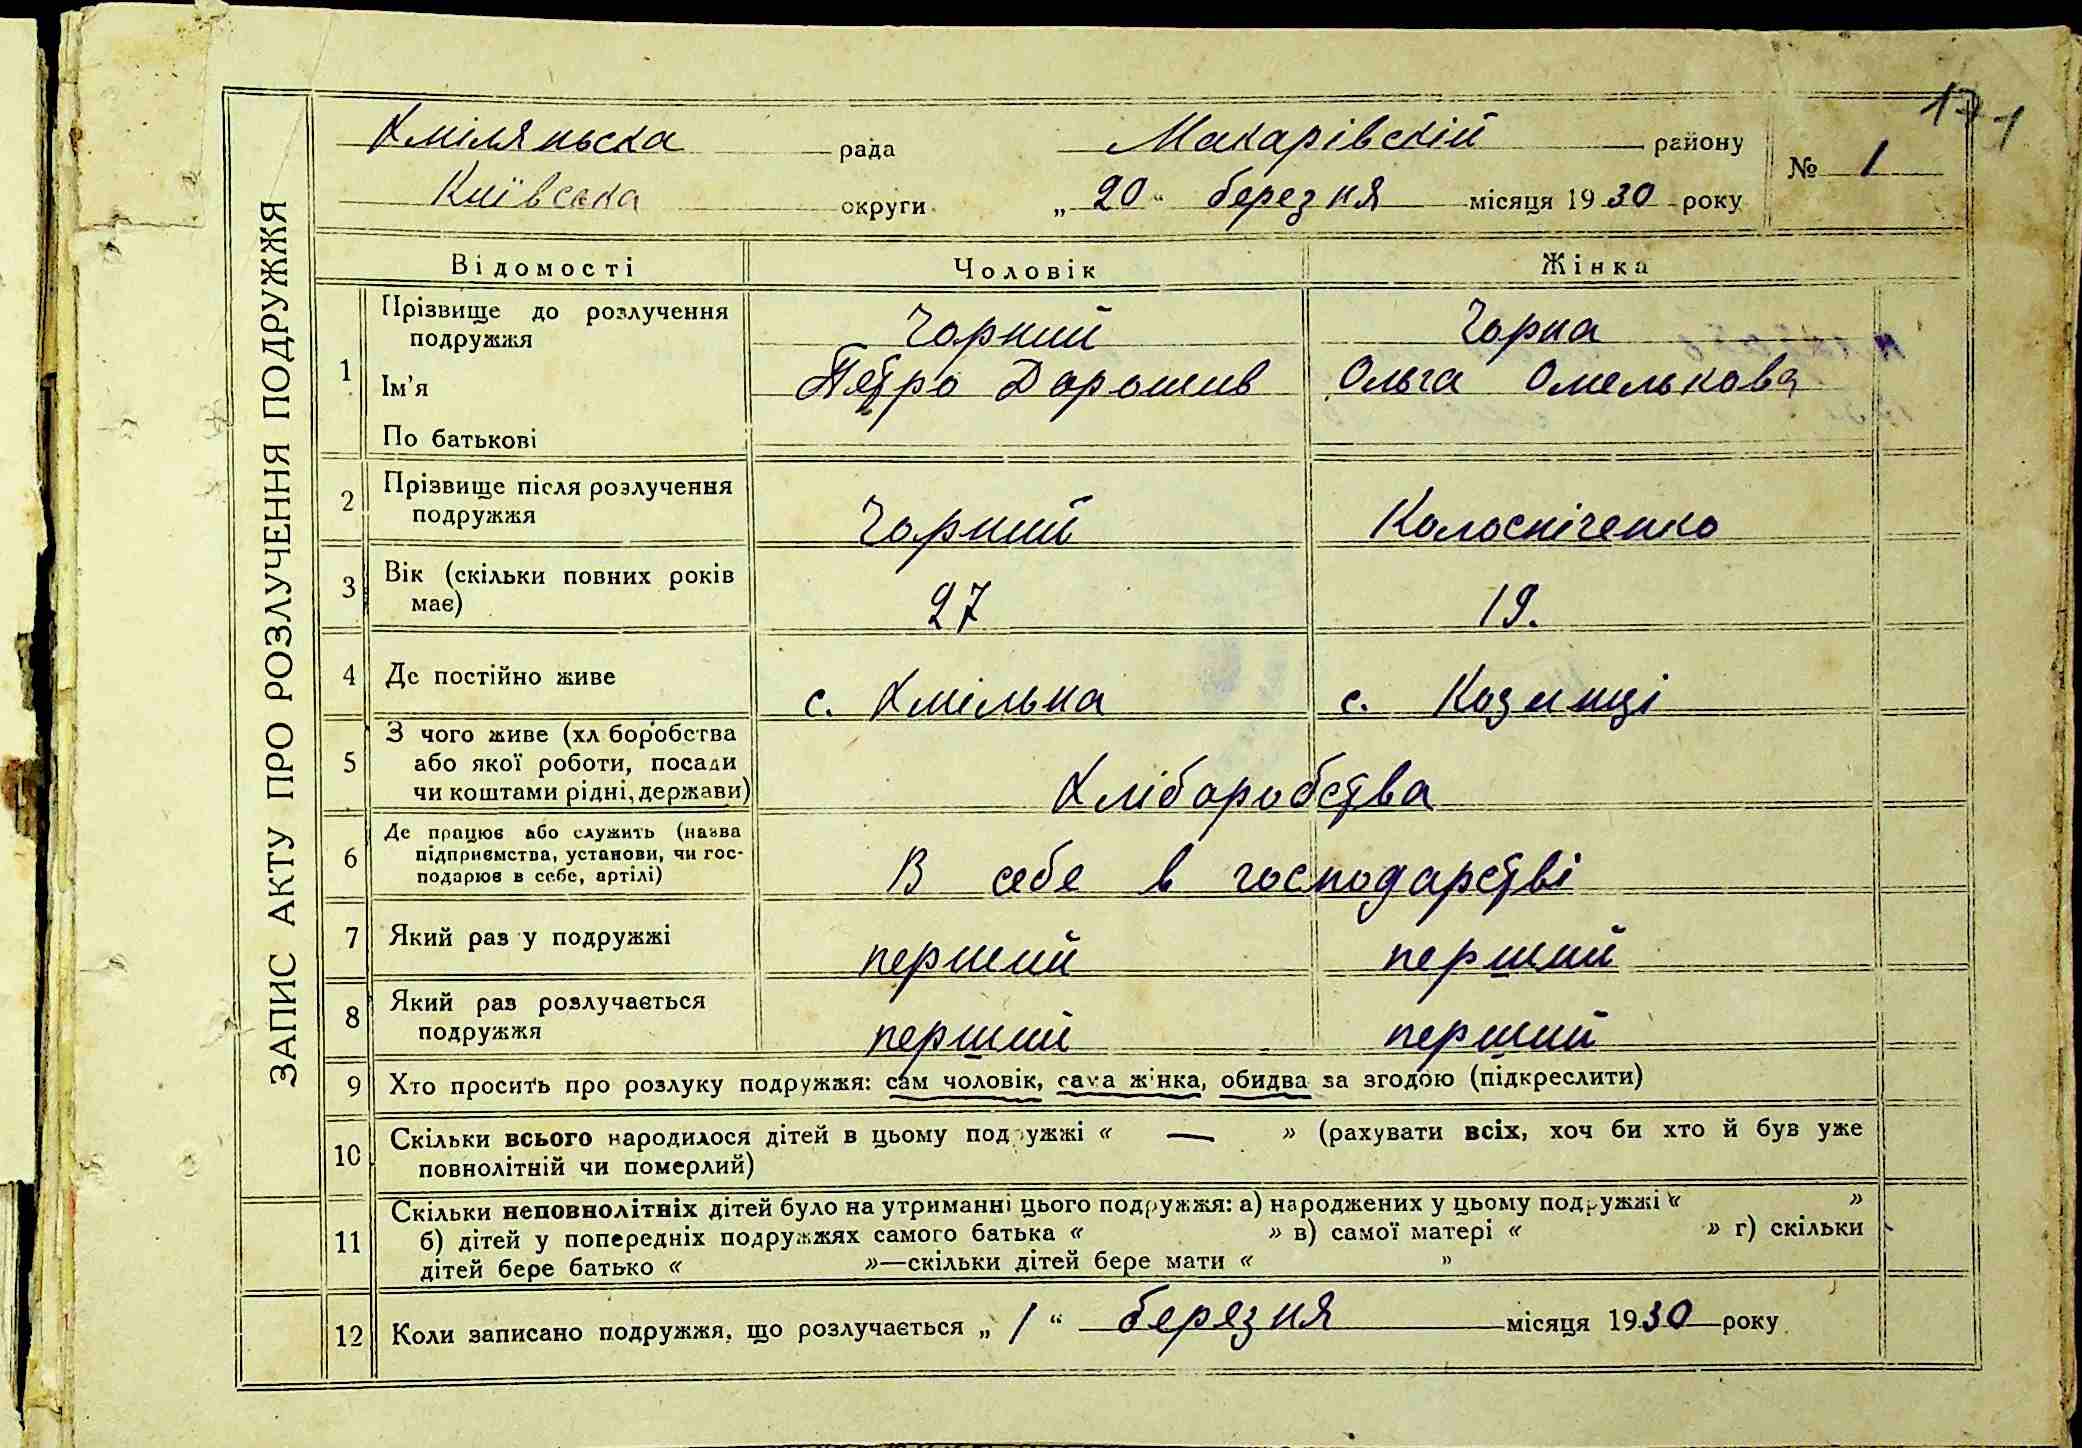 171
Хміляньска рада Макарівскій району № 1
Київська округи „ 20 “ березня місяця 1930 року
ЗАПИС АКТУ ПРО РОЗЛУЧЕННЯ ПОДРУЖЖЯ
Відомості Чоловік Жінка
1 Прізвище до розлучення
подружжя Чорний Чорна
Ім'я Петро Дорошив Ольга Омелькова
По батькові
2 Прізвище після розлучення
подружжя Чорний Колосніченко
3 Вік (скільки повних років
має) 27 19.
4 Де постійно живе с. Хмільна с. Козинці
5 З чого живе (хлі боробства
або якої роботи, посади
чи коштами рідні, держави) Хліборобства
6 Де працює або служить (назва
підприємства, установи, чи гос-
подарює в себе, артілі) В себе в господарстві
7 Який раз у подружжі перший перший
8 Який раз розлучається
подружжя перший перший
9 Хто просить про розлуку подружжя: сам чоловік, сама жінка, обидва за згодою (підкреслити)
10 Скільки всього народилося дітей в цьому подружжі « — » (рахувати всіх, хоч би хто й був уже
повнолітній чи померлий)
11 Скільки неповнолітніх дітей було на утриманні цього подружжя: а) народжених у цьому подружжі « »
б) дітей у попередніх подружжях самого батька « » в) самої матері « » г) скільки
дітей бере батько « »—скільки дітей бере мати « »
12 Коли записано подружжя, що розлучається „ 1 “ березня місяця 1930 року